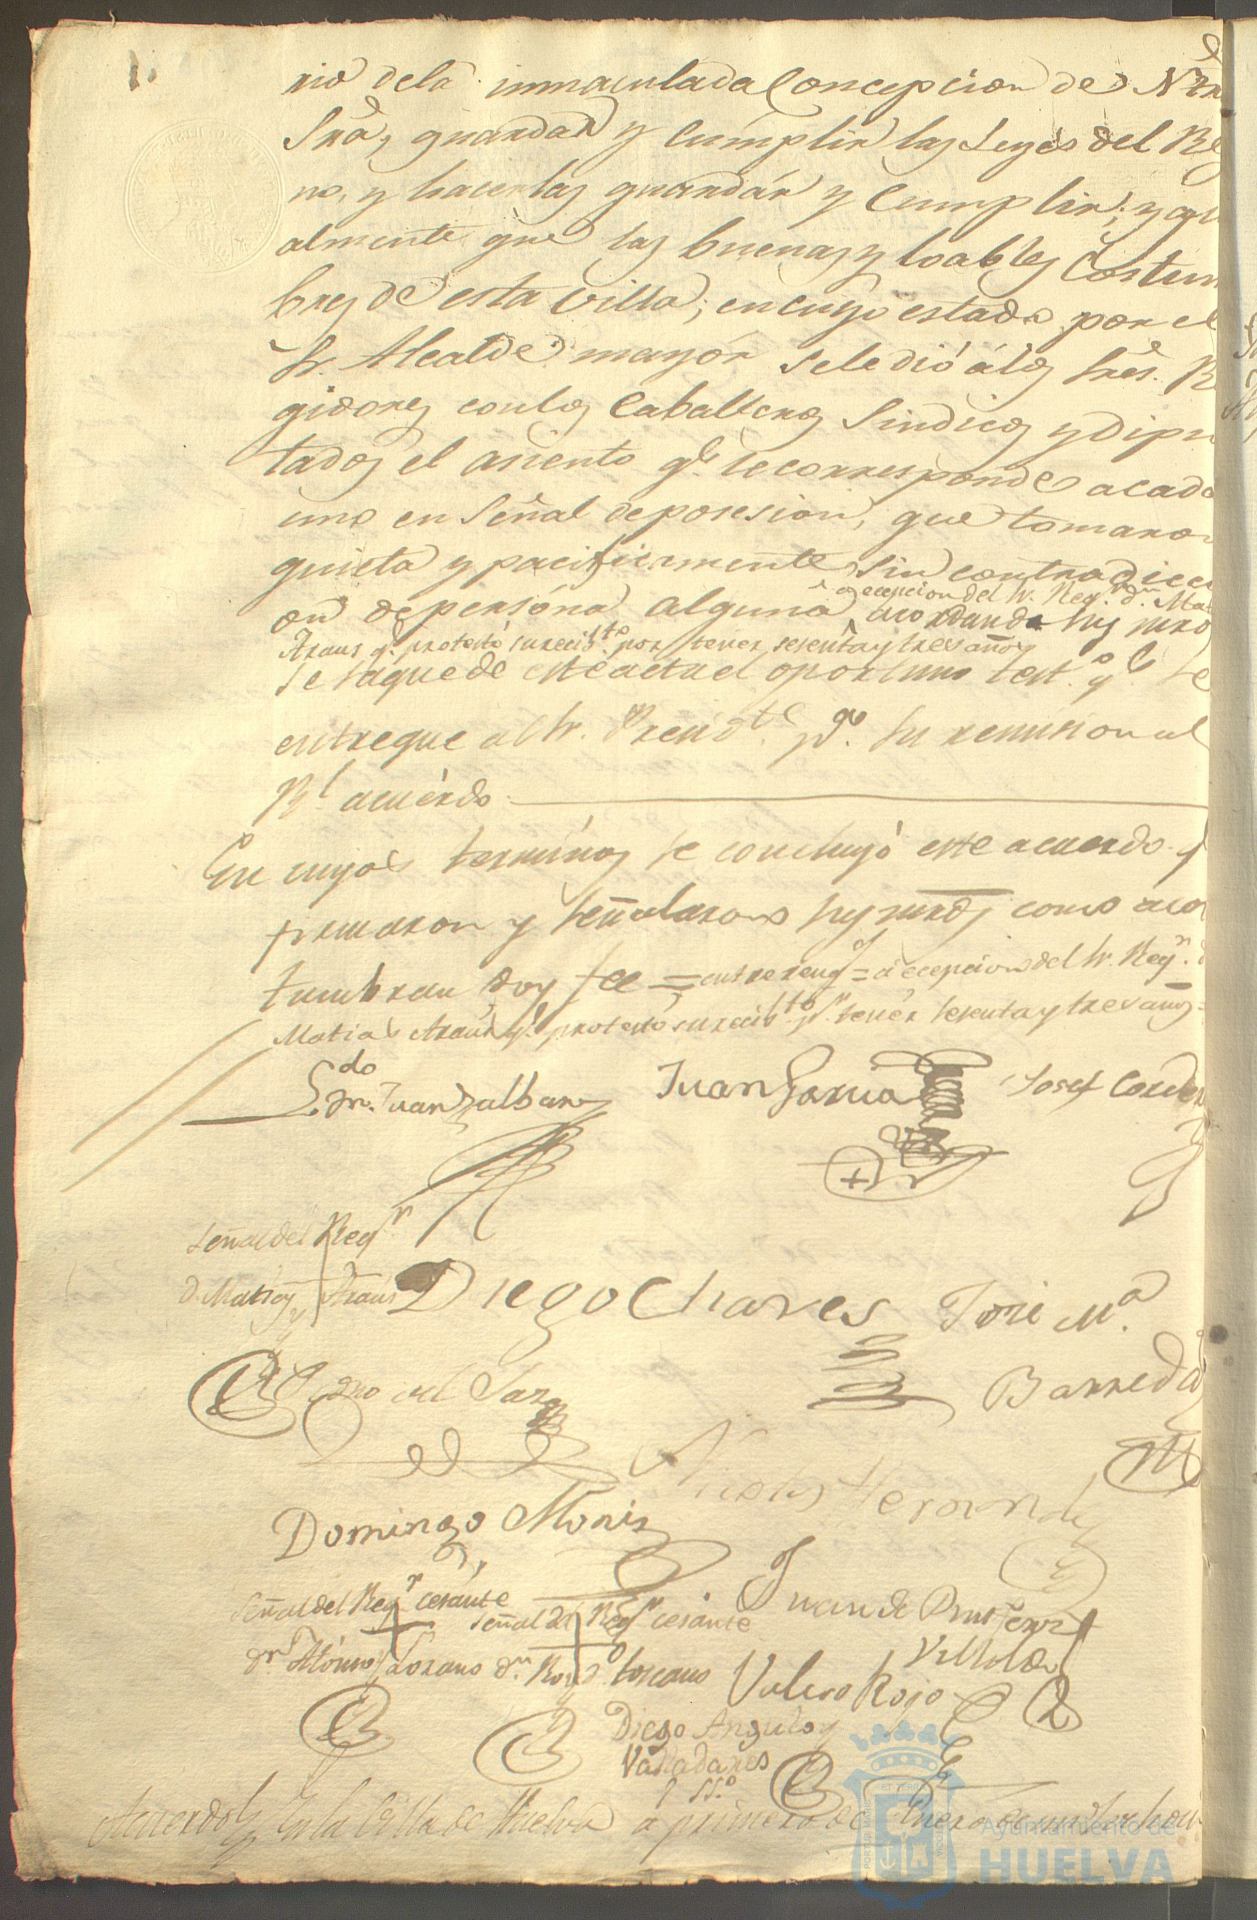 rio dela inmaculada Concepcion de Ntra
Sra, guardar y Cumplir las Leyes del Re
no, y hacerlas guardár y Cumplir; ygu
almente que las buenas y loables Costum
bres de esta villa; en cuyo estado por el
Sr. Alcalde mayór se le dió á los Sres. Re
gidores con los Caballeros Sindicos y Dipu
tados el asiento qe. le corresponde a cada
uno en Señal de posesion, que tomaron
quieta y pacificamente sin contradicci
on de persóna alguna, acordando sus mrds
a ecepcion del Sr. Regr. dn. Mat
Araus qe. protestó su recibto. por tener sesenta y tres años
se saque de este acta el oportuno testo. y qe. se
entregue al Sr. Presidte. pa. su remision al
Rl. acuérdo
En cuyos terminos se concluyó este acuerdo. q
firmaron y señalaron sus mrds como acos
tumbran doy fee = entrereng = a ecepcion del Sr. Regr. d
Matias Araus qe. protestó su recibto. pr. tenér sesenta y tres años =
Ldo. Dn. Juan Zalbany
Juan Garcia
Josef Corder
Señal del Regr.
D. Matias Araus
Diego Chaves
José Ma.
Barreda
Pedro del Sarz
Nicolas Hernandz
Domingo Moriz
Señal del Regr. cesante
Señal del Regr. cesante
Juan de
dn. Alonso Lozano
dn. Rodo. toscano
Valero Rojo
Diego Angulo y
Valladares
SSo.
Acuerdo En la Villa de Huelva a primero de Enero de mil ochoci
Ayuntamiento de
HUELVA